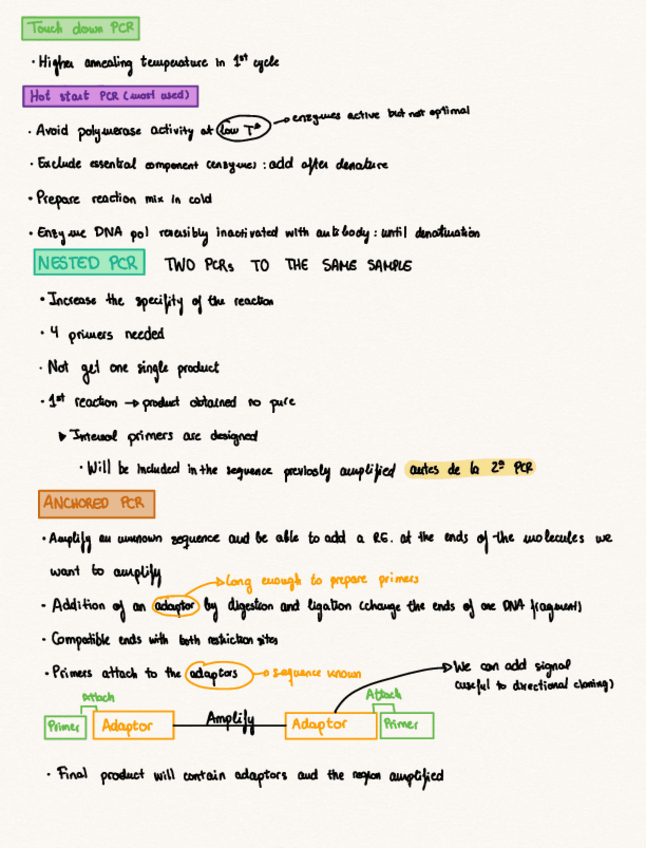 Touch down PCR
· Higher annealing temperature in 1st cycle
Hot start PCR (most used)
· Avoid polymerase activity at low Tª → enzymes active but not optimal
· Exclude essential component (enzyme) : add after denature
· Prepare reaction mix in cold
· Enzyme DNA pol reversibly inactivated with antibody : until denaturation
NESTED PCR TWO PCRs TO THE SAME SAMPLE
· Increase the specifity of the reaction
· 4 primers needed
· Not get one single product
· 1st reaction → product obtained no pure
▸ Internal primers are designed
· Will be included in the sequence previosly amplified antes de la 2ª PCR
ANCHORED PCR
· Amplify an unknown sequence and be able to add a RE. at the ends of the molecules we
want to amplify
→ Long enough to prepare primers
· Addition of an adaptor by digestion and ligation (change the ends of one DNA fragment)
· Compatible ends with both restriction sites
· Primers attach to the adaptors → sequence known
→ We can add signal
(useful to directional cloning)
Attach Attach
Primer Adaptor Amplify Adaptor Primer
· Final product will contain adaptors and the region amplified